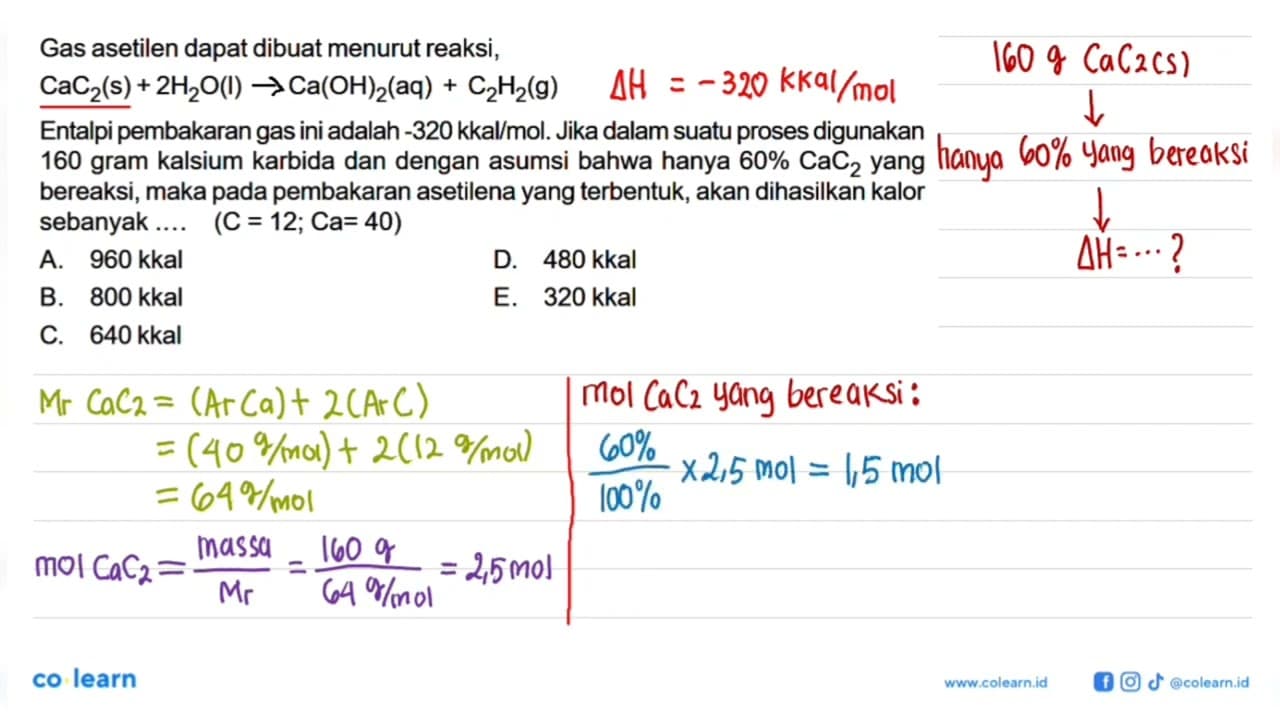 Gas asetilen dapat dibuat menurut reaksi,
CaC₂(s) + 2H₂O(l) → Ca(OH)₂(aq) + C₂H₂(g) ΔH = -320 kkal/mol
Entalpi pembakaran gas ini adalah -320 kkal/mol. Jika dalam suatu proses digunakan
160 gram kalsium karbida dan dengan asumsi bahwa hanya 60% CaC₂ yang
bereaksi, maka pada pembakaran asetilena yang terbentuk, akan dihasilkan kalor
sebanyak .... (C = 12; Ca= 40)
A. 960 kkal
B. 800 kkal
C. 640 kkal
D. 480 kkal
E. 320 kkal
160 g CaC2(s)
↓
hanya 60% yang bereaksi
↓
ΔH = ... ?
Mr CaC2 = (Ar Ca) + 2(Ar C)
= (40 g/mol) + 2(12 g/mol)
= 64 g/mol
mol CaC₂ = massa/Mr = 160 g/64 g/mol = 2,5 mol
mol CaC2 yang bereaksi:
60%/100% x 2,5 mol = 1,5 mol
co learn
www.colearn.id
@colearn.id